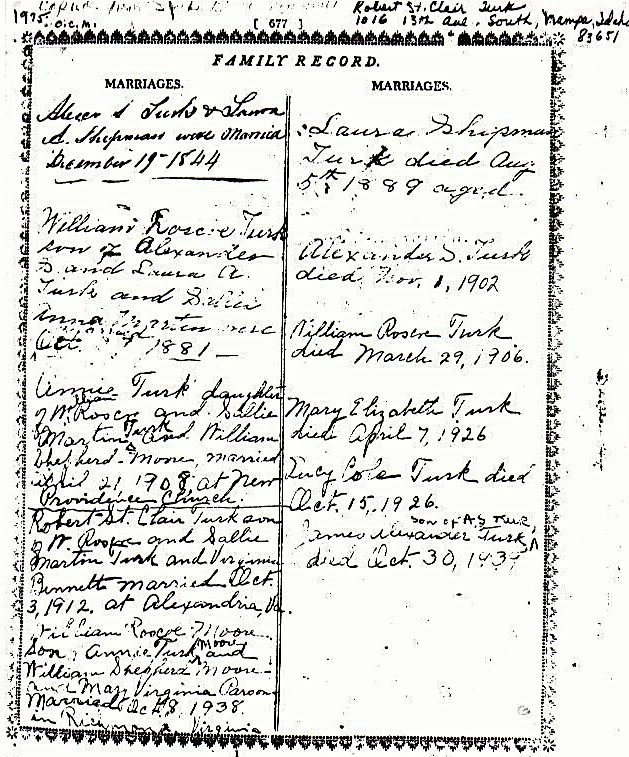 Robert St. Clair Turk
1975. O.C.M.
[ 677 ]
1016 13th Ave. South, Nampa, Idaho
83651
FAMILY RECORD.
MARRIAGES.
Alexr S Turk & Laura
A. Shipman were Married
December 19th 1844
William Roscoe Turk
son of Alexander
S. and Laura A.
Turk and Sallie
Anna Martin were
Oct. 1881
Annie Turk daughter
of Wm Roscoe and Sallie
Martin Turk and William
Shepherd Moore, married
April 21, 1908 at New
Providence Church.
Robert St. Clair Turk son
of W. Roscoe and Sallie
Martin Turk and Virginia
Bennett married Oct.
3, 1912. at Alexandria, Va.
William Roscoe Moore
Son, Annie Turk Moore and
William Shepherd Moore
and Mary Virginia Parson
Married Oct. 8, 1938.
in Richmond Virginia
MARRIAGES.
Laura Shipman
Turk died Aug
5th 1889 aged
Alexander S. Turk
died Nov. 1, 1902
William Roscoe Turk
died March 29, 1906.
Mary Elizabeth Turk
died April 7, 1926
Lucy Cole Turk died
Oct. 15, 1926.
son of A.S. Turk,
James Alexander Turk
died Oct. 30, 1939